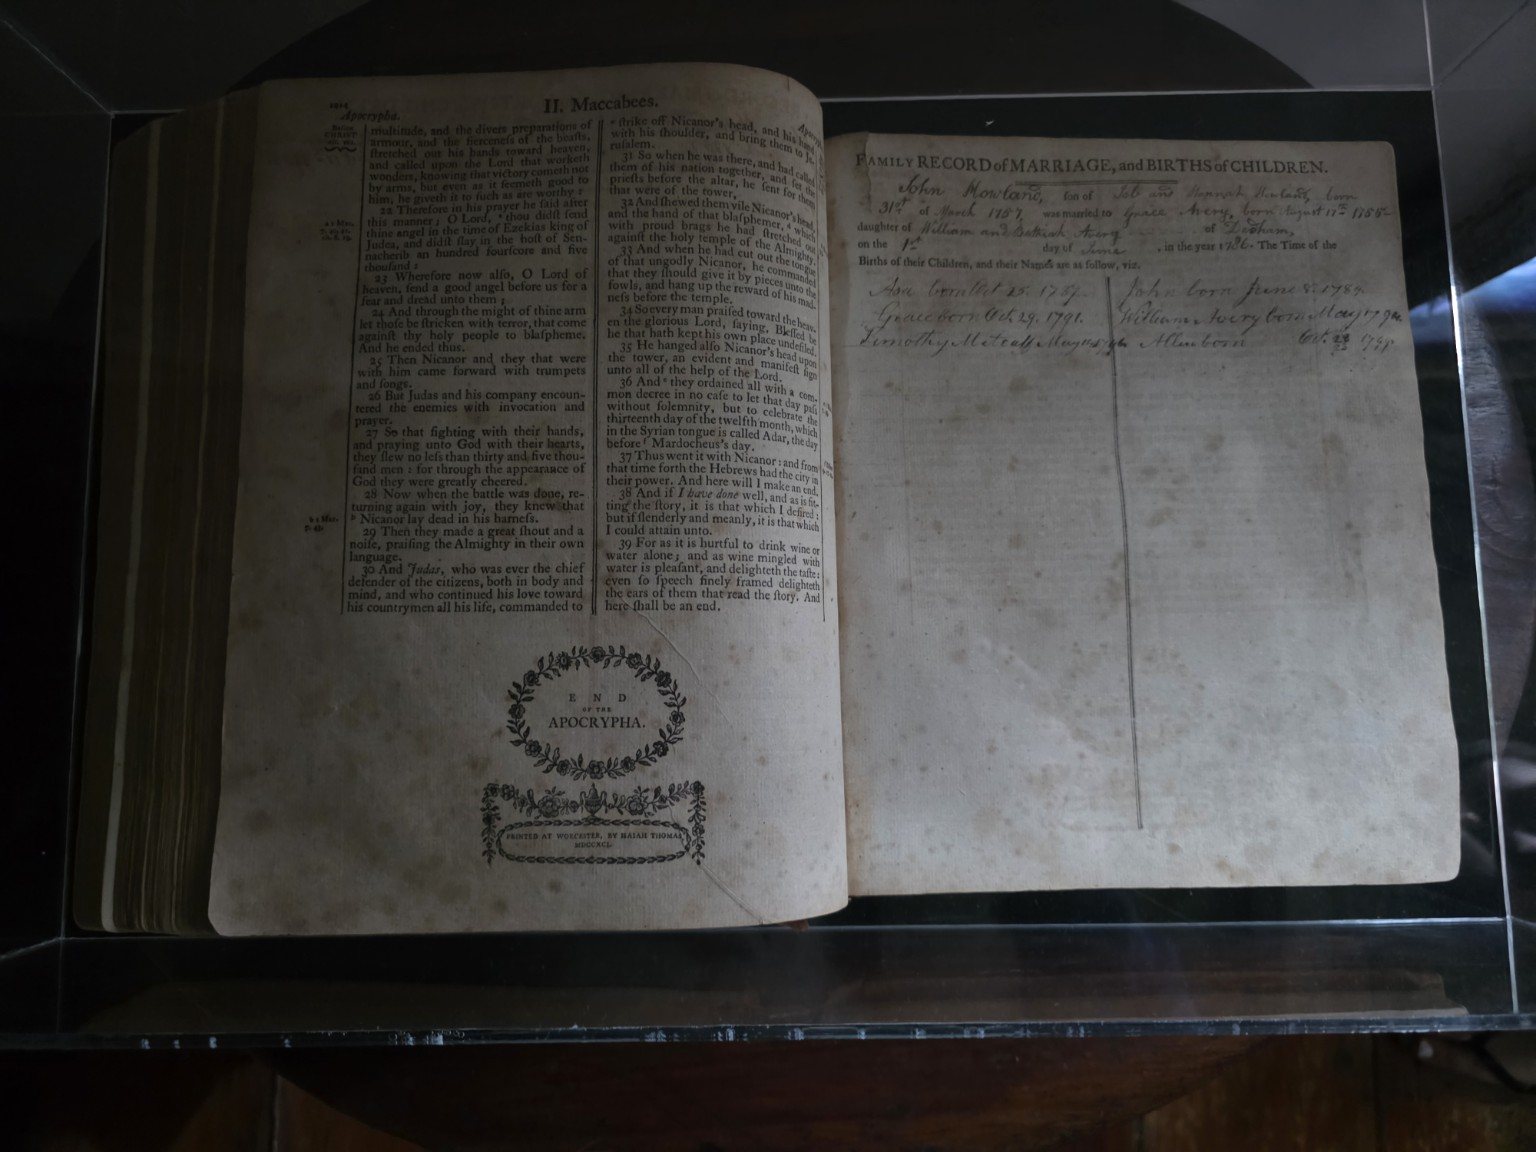 1014
Apocrypha.
II. Maccabees.
Before
CHRIST
multitude, and the divers preparations of
armour, and the fierceneſs of the beaſts,
ſtretched out his hands toward heaven,
and called upon the Lord that worketh
wonders, knowing that victory cometh not
by arms, but even as it ſeemeth good to
him, he giveth it to ſuch as are worthy:
22 Therefore in his prayer he ſaid after
this manner; O Lord, thou didſt ſend
thine angel in the time of Ezekias king of
Judea, and didſt ſlay in the hoſt of Sen-
nacherib an hundred fourſcore and five
thouſand:
23 Wherefore now alſo, O Lord of
heaven, ſend a good angel before us for a
fear and dread unto them;
24 And through the might of thine arm
let thoſe be ſtricken with terror, that come
againſt thy holy people to blaſpheme.
And he ended thus.
25 Then Nicanor and they that were
with him came forward with trumpets
and ſongs.
26 But Judas and his company encoun-
tered the enemies with invocation and
prayer.
27 So that fighting with their hands,
and praying unto God with their hearts,
they ſlew no leſs than thirty and five thou-
ſand men: for through the appearance of
God they were greatly cheered.
28 Now when the battle was done, re-
turning again with joy, they knew that
Nicanor lay dead in his harneſs.
29 Then they made a great ſhout and a
noiſe, praiſing the Almighty in their own
language.
30 And Judas, who was ever the chief
defender of the citizens, both in body and
mind, and who continued his love toward
his countrymen all his life, commanded to
ſtrike off Nicanor's head, and his hand
with his ſhoulder, and bring them to Je-
ruſalem.
31 So when he was there, and had called
them of his nation together, and ſet the
prieſts before the altar, he ſent for them
that were of the tower,
32 And ſhewed them vile Nicanor's head,
and the hand of that blaſphemer, which
with proud brags he had ſtretched out
againſt the holy temple of the Almighty.
33 And when he had cut out the tongue
of that ungodly Nicanor, he commanded
that they ſhould give it by pieces unto the
fowls, and hang up the reward of his mad-
neſs before the temple.
34 So every man praiſed toward the heav-
en the glorious Lord, ſaying, Bleſſed be
he that hath kept his own place undefiled.
35 He hanged alſo Nicanor's head upon
the tower, an evident and manifeſt ſign
unto all of the help of the Lord.
36 And they ordained all with a com-
mon decree in no caſe to let that day paſs
without ſolemnity, but to celebrate the
thirteenth day of the twelfth month, which
in the Syrian tongue is called Adar, the day
before Mardocheus's day.
37 Thus went it with Nicanor: and from
that time forth the Hebrews had the city in
their power. And here will I make an end.
38 And if I have done well, and as is fit-
ting the ſtory, it is that which I deſired;
but if ſlenderly and meanly, it is that which
I could attain unto.
39 For as it is hurtful to drink wine or
water alone; and as wine mingled with
water is pleaſant, and delighteth the taſte:
even ſo ſpeech finely framed delighteth
the ears of them that read the ſtory. And
here ſhall be an end.
END
OF THE
APOCRYPHA.
PRINTED AT WORCESTER, BY ISAIAH THOMAS,
MDCCXCI.
FAMILY RECORD of MARRIAGE, and BIRTHS of CHILDREN.
John Howland, son of Job and Hannah Howland, born
31st of March 1757, was married to Grace Avery, born August 17th 1755
daughter of William and Bethiah Avery of Dedham,
on the 1st day of June, in the year 1786. The Time of the
Births of their Children, and their Names are as follow, viz.
Asa born Oct 25. 1787.
Grace born Oct. 29. 1791.
Timothy Metcalf May
John born June 8. 1789.
William Avery born May
Allen born Oct. 1798